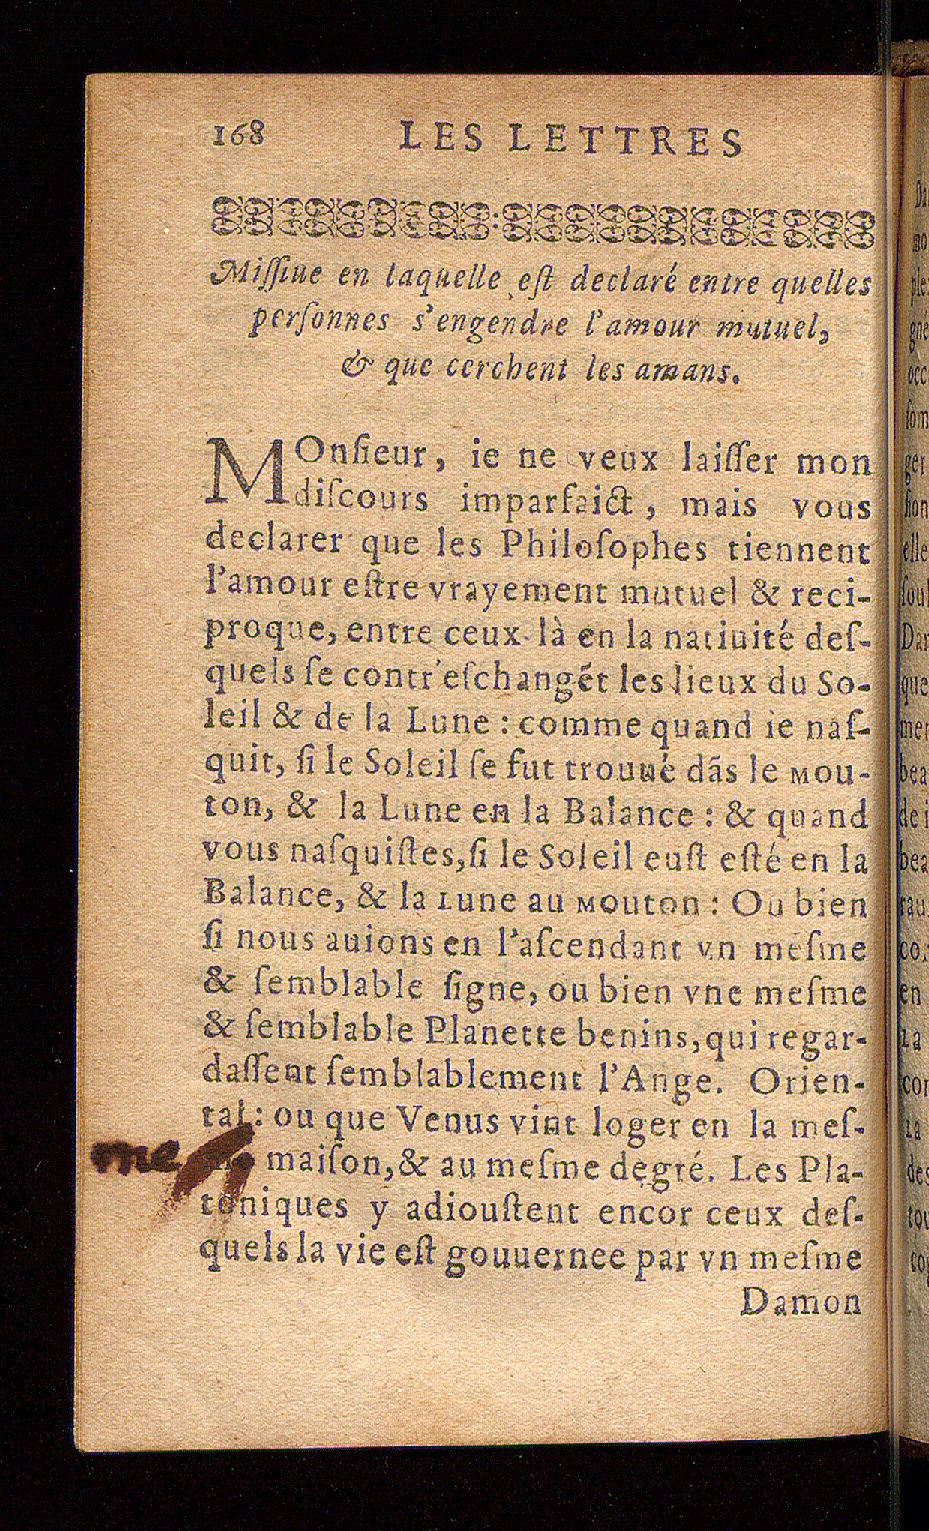 168 LES LETTRES
Miſſiue en laquelle eſt declaré entre quelles
perſonnes s'engendre l'amour mutuel,
& que cerchent les amans.
MOnſieur, ie ne veux laiſſer mon
diſcours imparfaict, mais vous
declarer que les Philoſophes tiennent
l'amour eſtre vrayement mutuel & reci-
proque, entre ceux là en la natiuité deſ-
quels ſe contr'eſchangẽt les lieux du So-
leil & de la Lune : comme quand ie naſ-
quit, ſi le Soleil ſe fut trouué dãs le Mou-
ton, & la Lune en la Balance : & quand
vous naſquiſtes, ſi le Soleil euſt eſté en la
Balance, & la Lune au Mouton : Ou bien
ſi nous auions en l'aſcendant vn meſme
& ſemblable ſigne, ou bien vne meſme
& ſemblable Planette benins, qui regar-
daſſent ſemblablement l'Ange. Orien-
tal : ou que Venus vint loger en la meſ-
me maiſon, & au meſme degré. Les Pla-
toniques y adiouſtent encor ceux deſ-
quels la vie eſt gouuernee par vn meſme
Damon